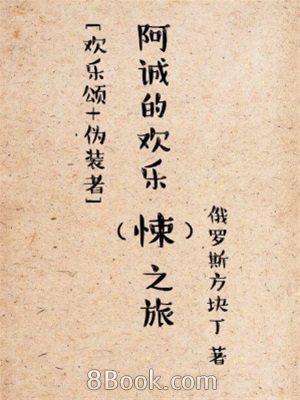 [欢乐颂+伪装者]
阿诚的欢乐
(悚)之旅
俄罗斯方块丁 著
8Book.com